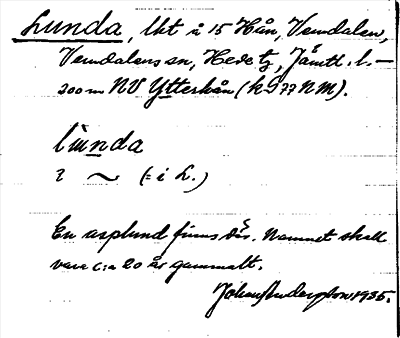 Lunda, lht å 15 Hån, Vemdalen,
Vemdalens sn, Hede tg, Jämtl. l. —
200 m NV Ytterhån (kS 77 NM).
lunda
i ~ (= i L.)
En asplund finns där. Namnet skall
vara c:a 20 år gammalt.
1935.